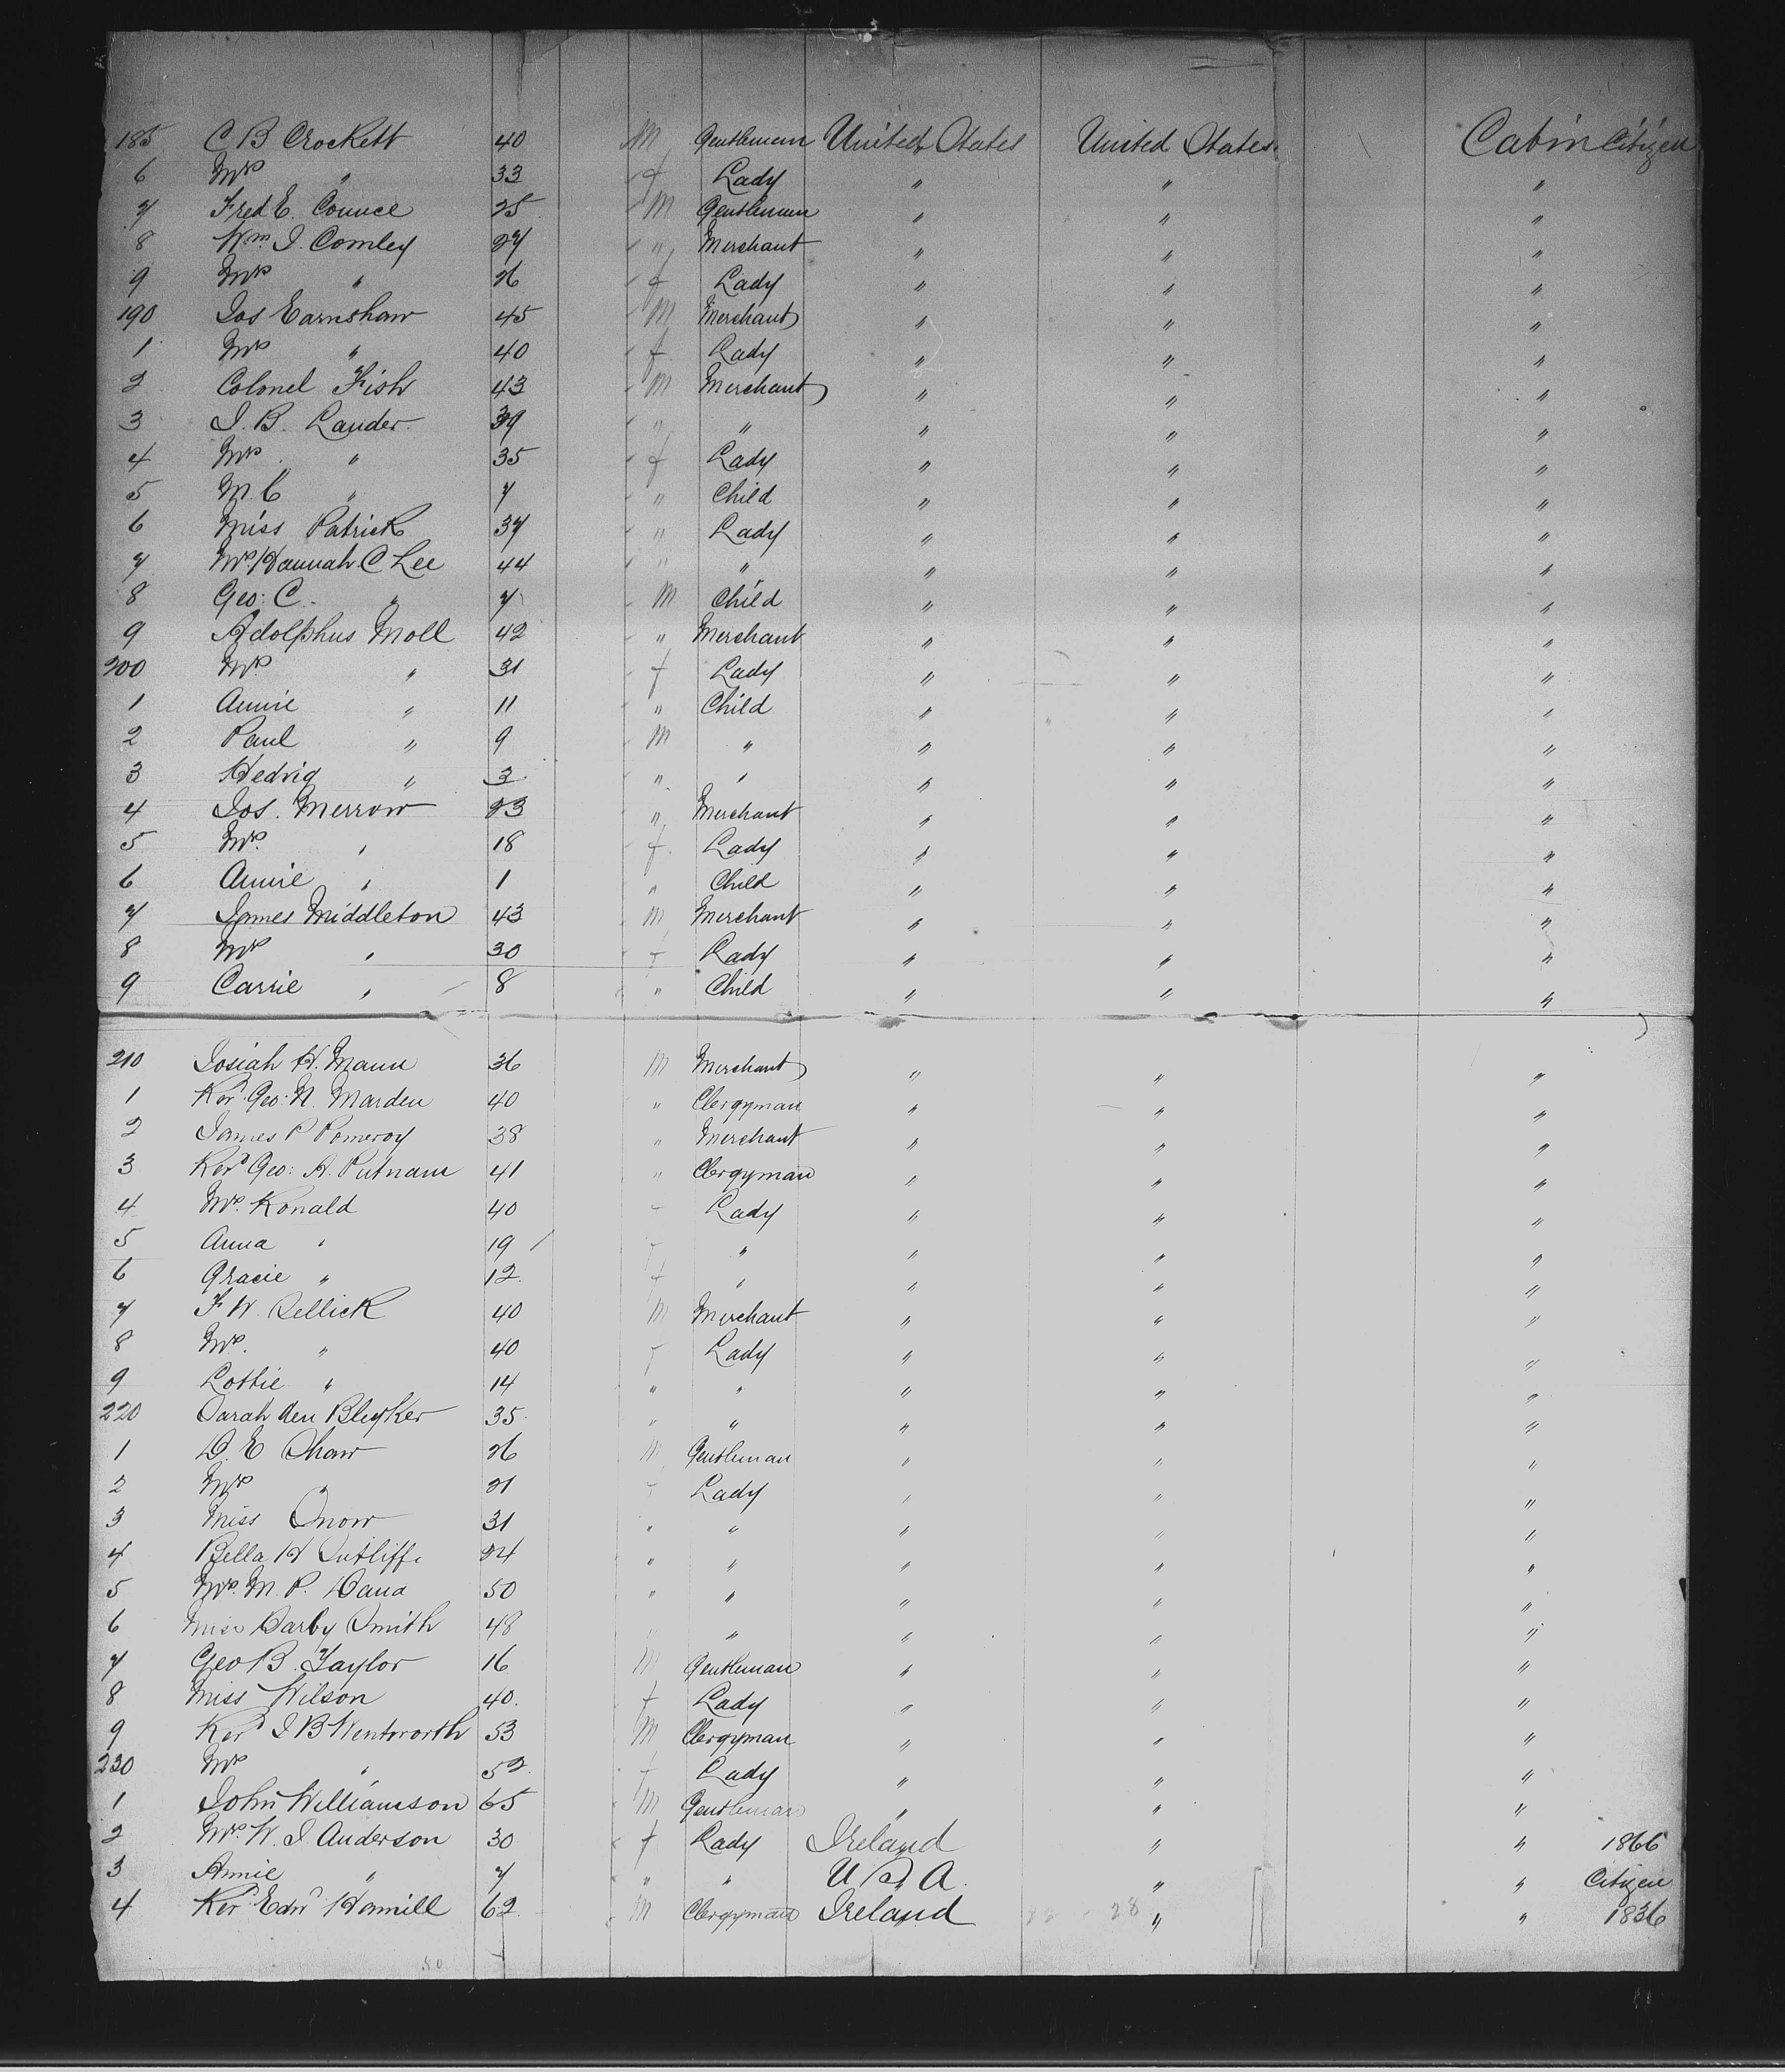 185 C B Crockett 40 M Gentleman United States United States Cabin Citizen
6 Mrs " 33 f Lady " " "
7 Fred E. Counce 25 M Gentleman " " "
8 Wm J. Comley 27 " Merchant " " "
9 Mrs " 26 f Lady " " "
190 Jos Earnshaw 45 M Merchant " " "
1 Mrs " 40 f Lady " " "
2 Colonel Fish 43 M Merchant " " "
3 J. B. Lauder 39 " " " " "
4 Mrs " 35 f Lady " " "
5 M. C " 7 " Child " " "
6 Miss Patrick 37 " Lady " " "
7 Mrs Hannah C Lee 44 " " " " "
8 Geo: C. " 7 M Child " " "
9 Adolphus Moll 42 " Merchant " " "
200 Mrs " 31 f Lady " " "
1 Annie " 11 " Child " " "
2 Paul " 9 M " " " "
3 Hedvig " 3 " " " " "
4 Jos. Merrow 23 " Merchant " " "
5 Mrs " 18 f Lady " " "
6 Annie " 1 " Child " " "
7 James Middleton 43 M Merchant " " "
8 Mrs " 30 f Lady " " "
9 Carrie " 8 " Child " " "
210 Josiah H. Mann 36 M Merchant " " "
1 Revd Geo: N. Marden 40 " Clergyman " " "
2 James P Pomeroy 38 " Merchant " " "
3 Revd Geo: A. Putnam 41 " Clergyman " " "
4 Mrs Ronald 40 Lady " " "
5 Anna " 19 f " " " "
6 Gracie " 12 f " " " "
7 F W. Sellick 40 M Merchant " " "
8 Mrs " 40 f Lady " " "
9 Lottie " 14 " " " " "
220 Sarah den Bleyker 35 " " " " "
1 D. E Shaw 26 M Gentleman " " "
2 Mrs " 21 f Lady " " "
3 Miss Snow 31 " " " " "
4 Bella H Sutliffe 24 " " " " "
5 Mrs. M. P. Dana 50 " " " " "
6 Miss Darby Smith 48 " " " " "
7 Geo B. Taylor 16 M Gentleman " " "
8 Miss Wilson 40 f Lady " " "
9 Revd J B Wentworth 53 M Clergyman " " "
230 Mrs " 52 f Lady " " "
1 John Williamson 65 M Gentleman " " "
2 Mrs W. J Anderson 30 f Lady Ireland " " 1866
3 Annie " 7 " " U S A. " " Citizen
4 Revd Edwd Hamill 62 M Clergyman Ireland " " 1836